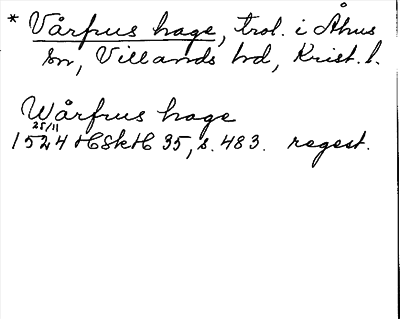 * Vårfrus hage, trol. i Åhus
sn, Villands hd, Krist. l.
Wårfrus hage
25/11
1524 HSkH 35, s. 483. regest.